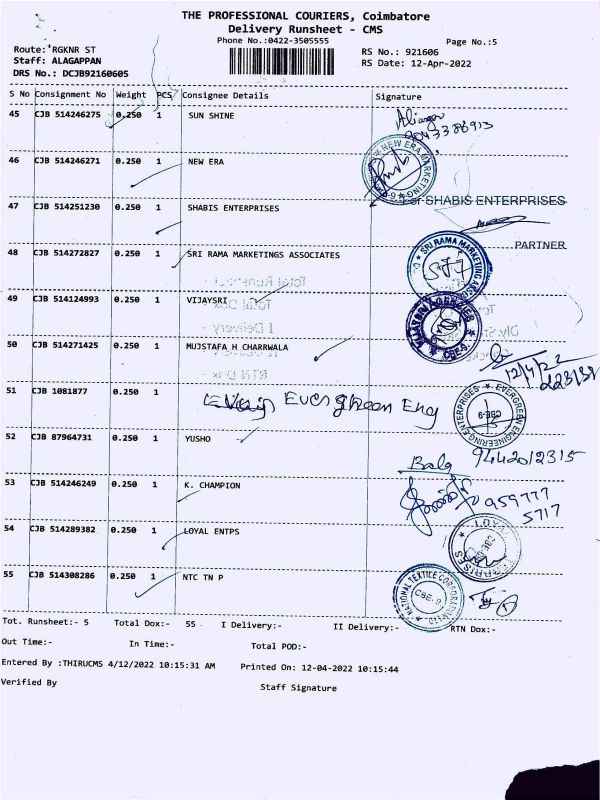 THE PROFESSIONAL COURIERS, Coimbatore
Delivery Runsheet - CMS
Phone No.:0422-3505555
Page No.:5
Route: RGKNR ST
RS No.: 921606
Staff: ALAGAPPAN
RS Date: 12-Apr-2022
DRS No.: DCJB92160605
S No Consignment No Weight PCS Consignee Details Signature
45 CJB 514246275 0.250 1 SUN SHINE
46 CJB 514246271 0.250 1 NEW ERA
NEW ERA MARKETING
47 CJB 514251230 0.250 1 SHABIS ENTERPRISES
For SHABIS ENTERPRISES
PARTNER
48 CJB 514272827 0.250 1 SRI RAMA MARKETINGS ASSOCIATES
SRI RAMA MARKETING
49 CJB 514124993 0.250 1 VIJAYSRI
AGENCIES
CBE-9
50 CJB 514271425 0.250 1 MUJSTAFA H CHARRWALA
12/4/22
51 CJB 1081877 0.250 1 Evergreen Eng
EVERGREEN ENGINEERING ENTERPRISES
CBE-9
52 CJB 87964731 0.250 1 YUSHO
Bala 9442012315
53 CJB 514246249 0.250 1 K. CHAMPION
959777
5717
54 CJB 514289382 0.250 1 LOYAL ENTPS
55 CJB 514308286 0.250 1 NTC TN P
NATIONAL TEXTILE CORPORATION LTD
CBE-9
Tot. Runsheet:- 5 Total Dox:- 55 I Delivery:- II Delivery:- RTN Dox:-
Out Time:- In Time:- Total POD:-
Entered By :THIRUCMS 4/12/2022 10:15:31 AM Printed On: 12-04-2022 10:15:44
Verified By Staff Signature